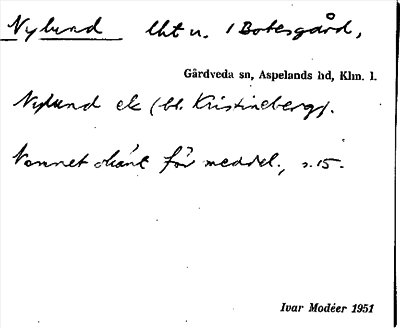 Nylund lht u. /Botesgård,
Gårdveda sn, Aspelands hd, Klm. l.
Nylund ek (bl. Kristineberg).
Namnet okänt för meddel., s. 15.
Ivar Modéer 1951